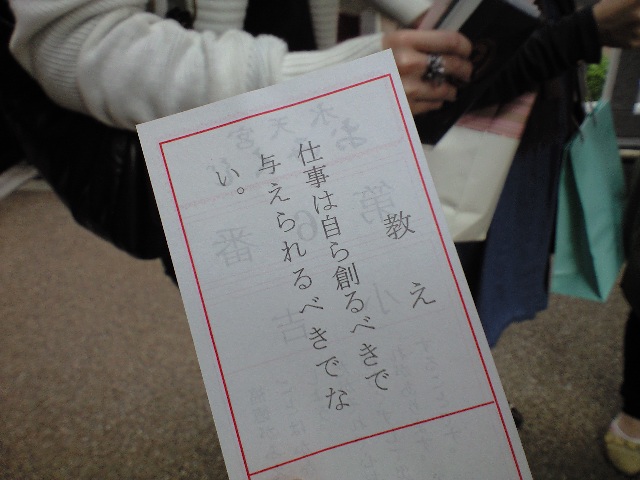 教え
仕事は自ら創るべきで
与えられるべきでな
い。